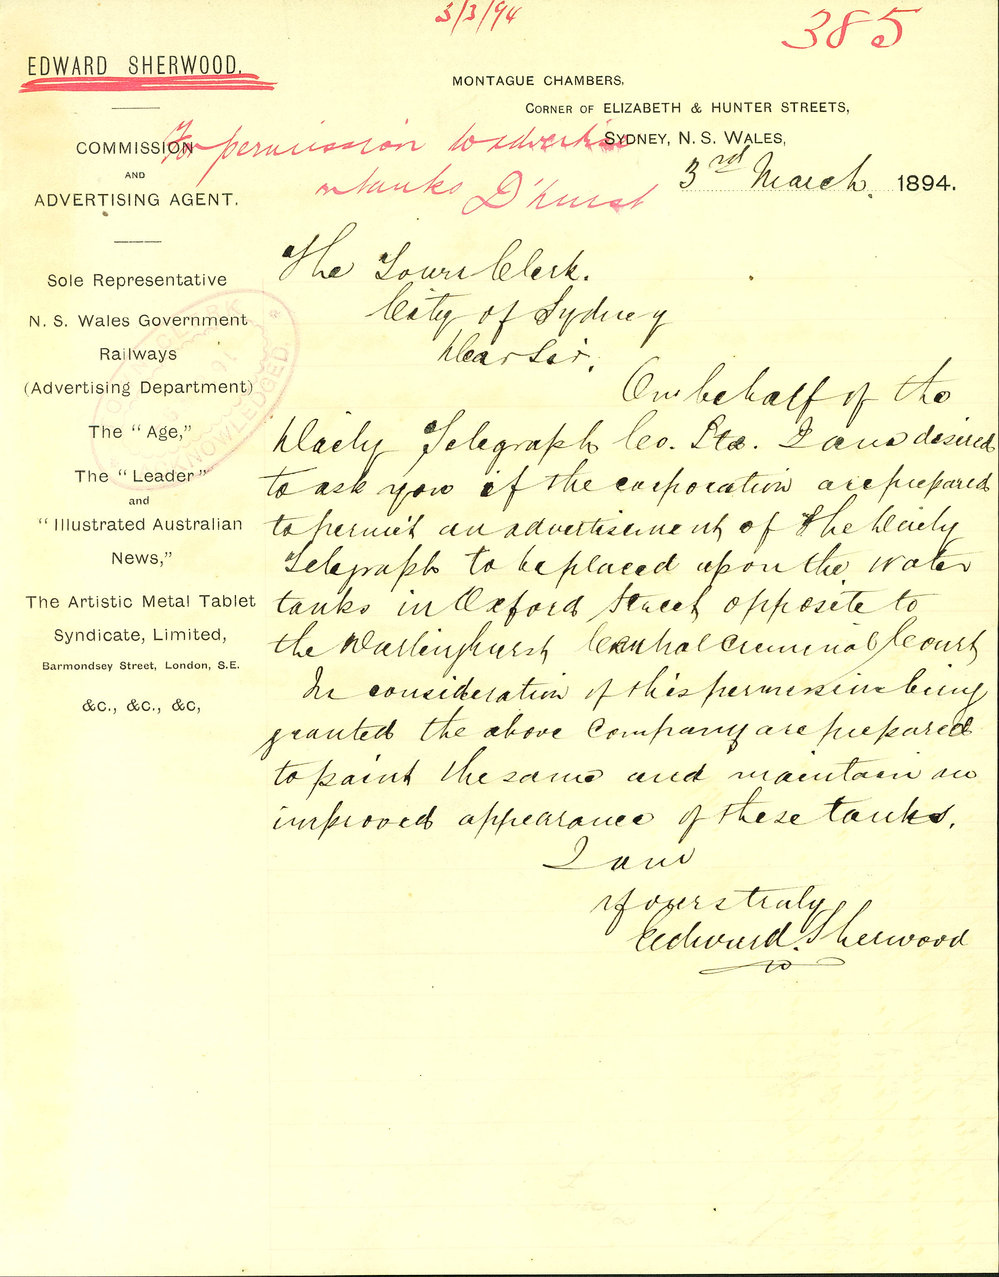 3/3/94
385
EDWARD SHERWOOD,
COMMISSION
AND
ADVERTISING AGENT.
Sole Representative
N. S. Wales Government
Railways
(Advertising Department)
The "Age,"
The "Leader"
and
"Illustrated Australian
News,"
The Artistic Metal Tablet
Syndicate, Limited,
Barmondsey Street, London, S.E.
&c., &c., &c,
MONTAGUE CHAMBERS,
CORNER OF ELIZABETH & HUNTER STREETS,
SYDNEY, N. S. WALES,
3rd March 1894.
For permission to advertise
on tanks D'hurst
The Town Clerk.
City of Sydney
Dear Sir,
On behalf of the
Daily Telegraph Co. Ltd. I am desired
to ask you if the corporation are prepared
to permit an advertisement of the Daily
Telegraph to be placed upon the water
tanks in Oxford Street opposite to
the Darlinghurst Central Criminal Court
In consideration of this permission being
granted the above company are prepared
to paint the same and maintain an
improved appearance of these tanks.
I am
Yours truly
Edward Sherwood
TOWN CLERK
ACKNOWLEDGED.